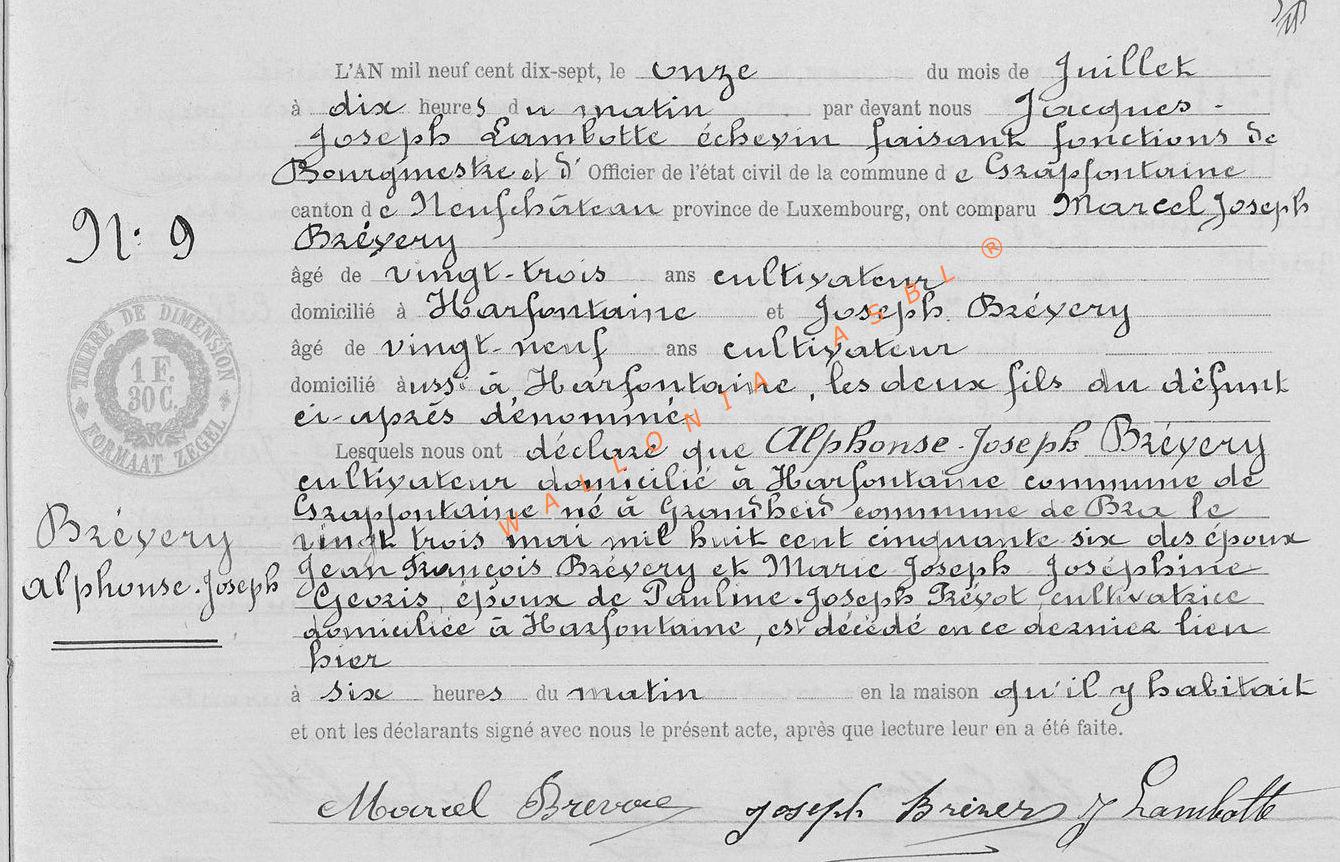 L'AN mil neuf cent dix-sept, le onze du mois de Juillet
à dix heures du matin par devant nous Jacques-
Joseph Lambotte échevin faisant fonctions de
Bourgmestre et d' Officier de l'état civil de la commune de Grapfontaine
canton de Neufchâteau province de Luxembourg, ont comparu Marcel Joseph
N: 9
Brévery
âgé de vingt-trois ans cultivateur
domicilié à Harfontaine et Joseph Brévery
âgé de vingt-neuf ans cultivateur
domicilié aussi à Harfontaine, les deux fils du défunt
ci-après dénommé
TIMBRE DE DIMENSION
1 F.
30 C.
FORMAAT ZEGEL
Lesquels nous ont déclaré que Alphonse-Joseph Brévery
cultivateur domicilié à Harfontaine commune de
Grapfontaine né à Grandheid commune de Bra le
vingt trois mai mil huit cent cinquante six des époux
Jean François Brévery et Marie Joseph Joséphine
Georis, époux de Pauline-Joseph Prévot, cultivatrice
domiciliée à Harfontaine, est décédé en ce dernier lieu
hier
Brévery
Alphonse-Joseph
à six heures du matin en la maison qu'il y habitait
et ont les déclarants signé avec nous le présent acte, après que lecture leur en a été faite.
Marcel Joseph J Lambotte
WALLONIA ASBL ®